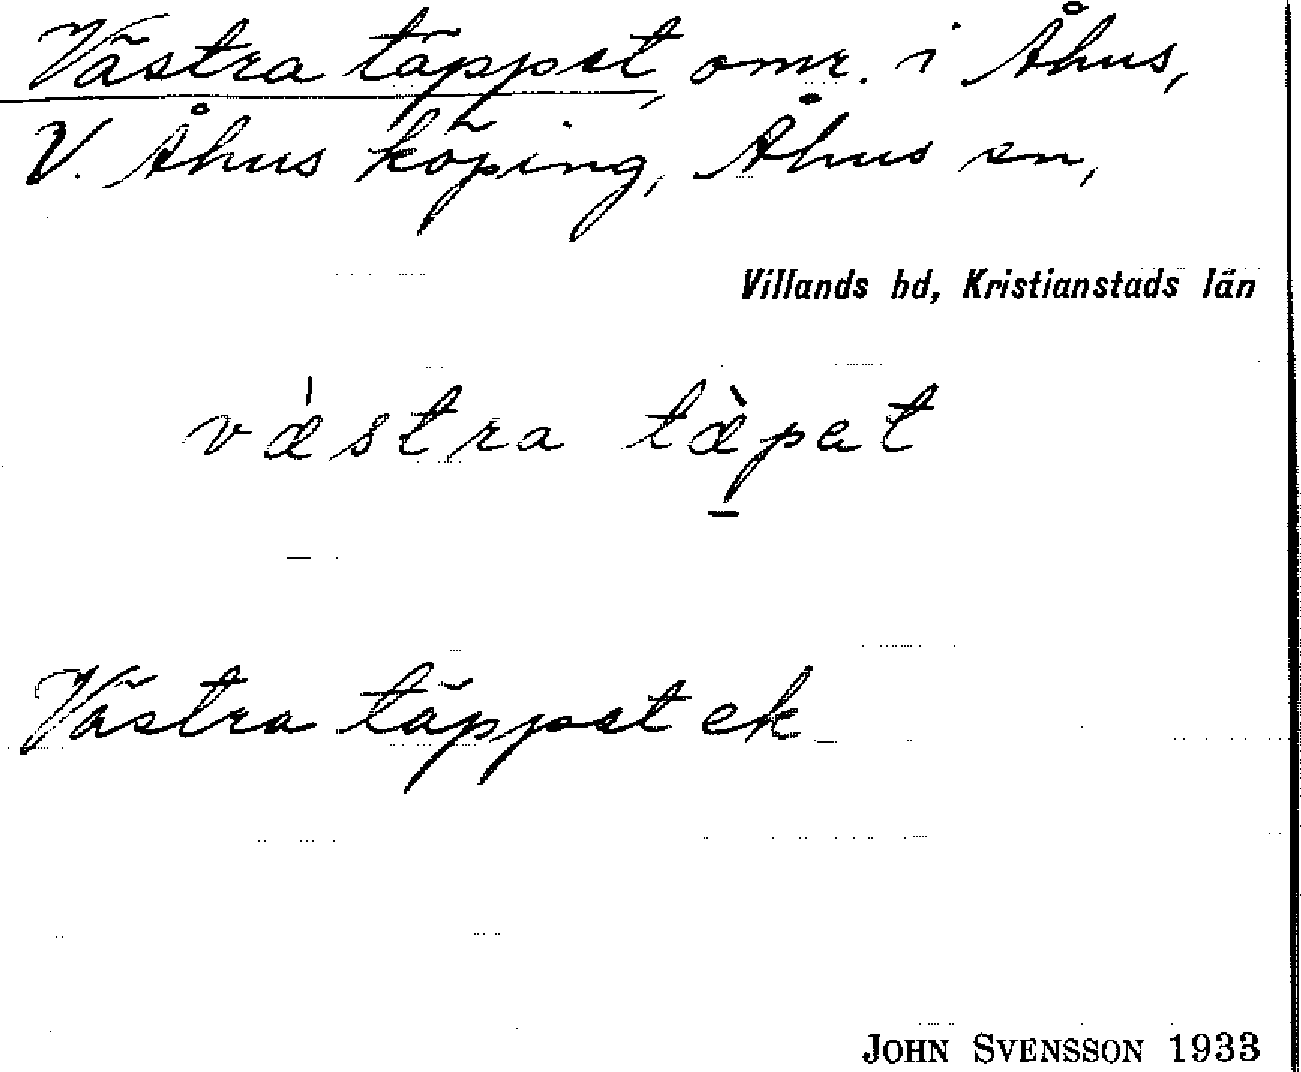 Västra täppet, omr. i Åhus,
V. Åhus köping, Åhus sn,
Villands hd, Kristianstads län
vǽstra tæ̀pat
Västra täppet ek
JOHN SVENSSON 1933